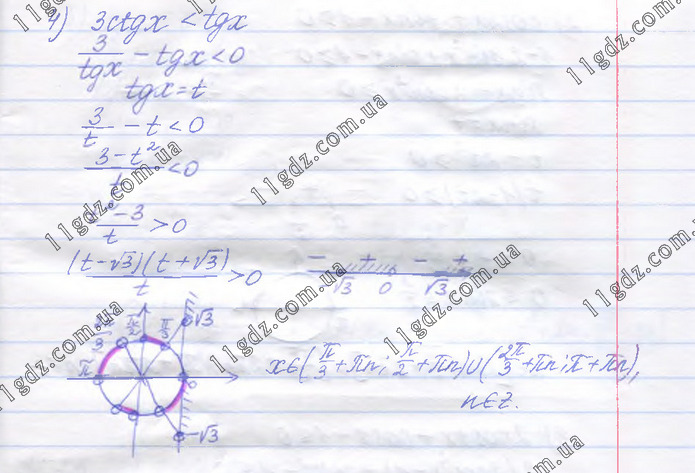 4) 3ctgx < tgx
3/tgx - tgx < 0
tgx = t
3/t - t < 0
3-t²/t < 0
-3/t > 0
(t-√3)(t+√3)/t > 0
- + - +
√3 0 √3
π/2 π/3 √3
3
π 0
-√3
x∈(π/3+πn; π/2+πn)∪(2π/3+πn; π+πn),
n∈z.
11gdz.com.ua
11gdz.com.ua
11gdz.com.ua
11gdz.com.ua
11gdz.com.ua
11gdz.com.ua
11gdz.com.ua